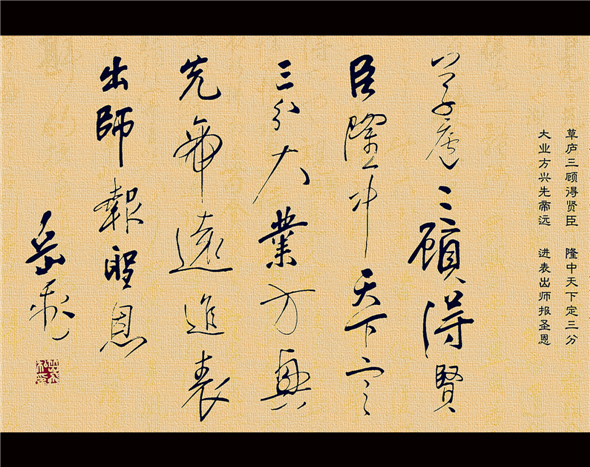 草庐三顾得贤臣 隆中天下定三分
大业方兴先帝远 进表出师报圣恩
草廬三顧得賢
臣隆中天下定
三分大業方興
先帝遠進表
出師報聖恩
岳飛